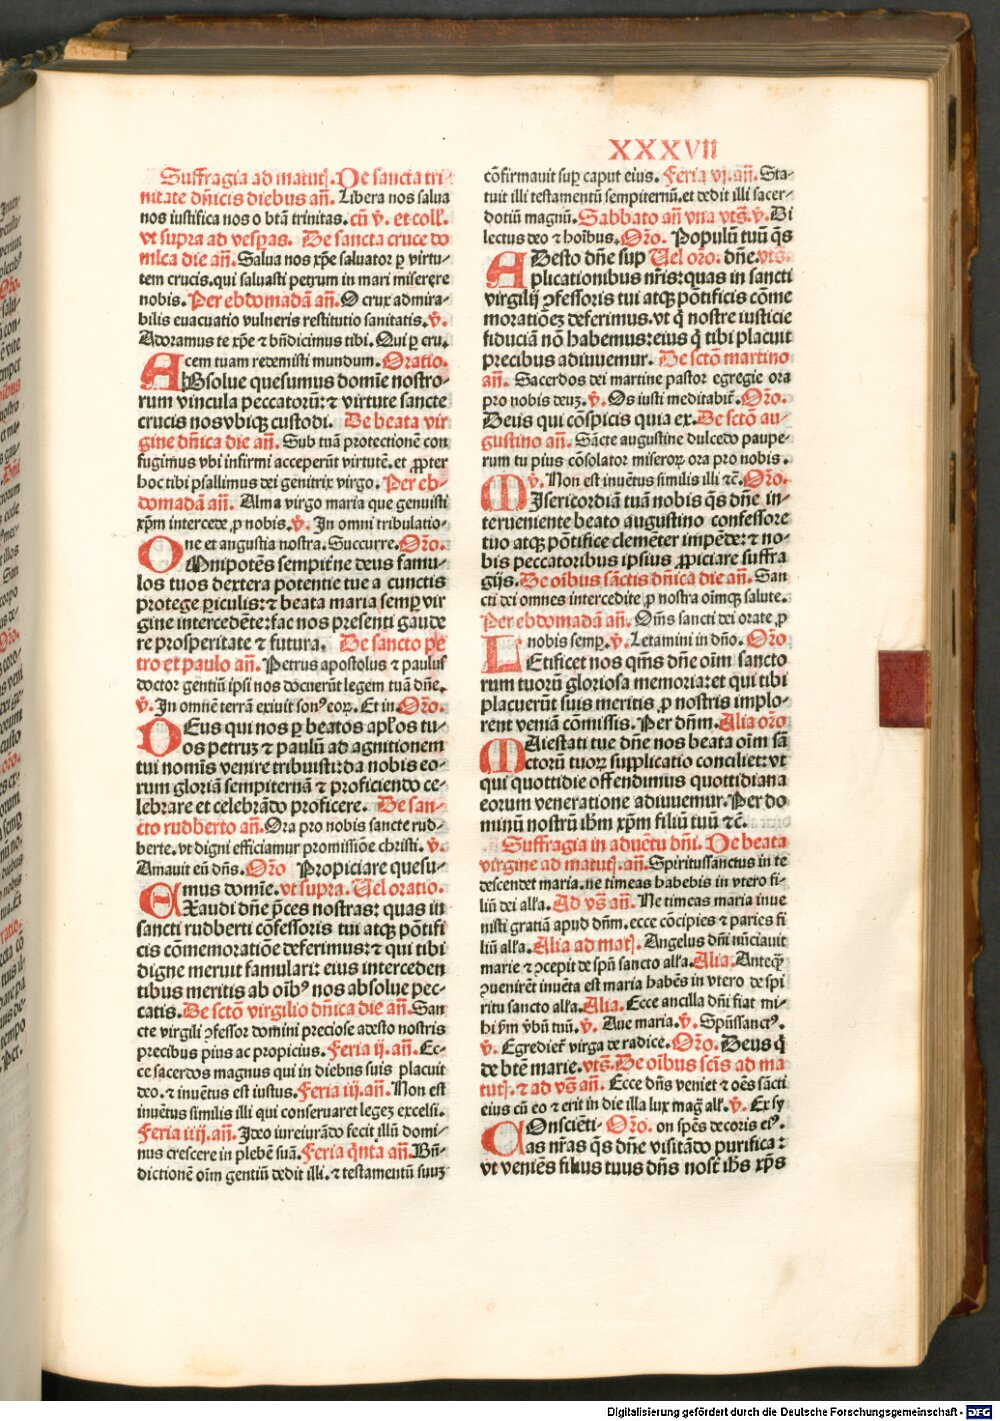 XXXVII
Suffragia ad matutꝭ. De sancta tri-
nitate dn̄icis diebus an̄. Libera nos salua
nos iustifica nos o btā trinitas. cū v̄. et coll̄.
vt supra ad vesꝑas. De sancta cruce do
mīca die an̄. Salua nos xp̄e saluator ꝑ virtu-
tem crucis. qui saluasti petrum in mari miserere
nobis. Per ebdomadā an̄. O crux admira-
bilis euacuatio vulneris restitutio sanitatis. v̄.
Adoramus te xp̄e ⁊ bn̄dicimus tibi. Qui ꝑ cru.
cem tuam redemisti mundum. Oratio.
ABsolue quesumus domīe nostro-
rum vincula peccatorū: ⁊ virtute sancte
crucis nos vbiqꝫ custodi. De beata vir
gine dn̄ica die an̄. Sub tuā protectionē con
fugimus vbi infirmi acceperūt virtutē. et ꝓpter
hoc tibi psallimus dei genitrix virgo. Per eb-
domadā an̄. Alma virgo maria que genuisti
xp̄m intercede ꝓ nobis. v̄. In omni tribulatio-
ne et angustia nostra. Succurre. Oro.
OMnipotēs sempiṫne deus famu-
los tuos dextera potentie tue a cunctis
protege ꝑiculis: ⁊ beata maria semꝑ vir
gine intercedēte: fac nos presenti gaude
re prosperitate ⁊ futura. De sancto pe
tro et paulo an̄. Petrus apostolus ⁊ paulus
doctor gentiū ipsi nos docuerūt legem tuā dn̄e.
v̄. In omnē terrā exiuit sonꝰ eoꝝ. Et in. Oro.
DEus qui nos ꝑ beatos apl̄os tu-
os petruꝫ ⁊ paulū ad agnitionem
tui nomīs venire tribuisti: da nobis eo-
rum gloriā sempiternā ⁊ proficiendo ce-
lebrare et celebrādo proficere. De san-
cto rudberto an̄. Ora pro nobis sancte rud-
berte. vt digni efficiamur promissiōe christi. v̄.
Amauit eū dn̄s. Oro Propiciare quesu-
mus domīe. vt supra. Uel oratio.
EXaudi dn̄e p̄ces nostras: quas in
sancti rudberti cōfessoris tui atqꝫ pōtifi
cis cōmemoratiōe deferimus: ⁊ qui tibi
digne meruit famulari: eius interceden
tibus meritis ab oībꝰ nos absolue pec-
catis. De sctō virgilio dn̄ica die an̄. San
cte virgili ꝯfessor domini preciose adesto nostris
precibus pius ac propicius. Feria ij. an̄. Ec-
ce sacerdos magnus qui in diebus suis placuit
deo. ⁊ inuētus est iustus. Feria iij. an̄. Non est
inuētus similis illi qui conseruaret legeꝫ excelsi.
Feria iiij. an̄. Ideo iureiurādo fecit illū domi-
nus crescere in plebē suā. Feria qͥnta an̄. Bn̄-
dictionē oīm gentiū dedit illi. ⁊ testamentū suuꝫ
cōfirmauit suꝑ caput eius. Feria vj. an̄. Sta-
tuit illi testamentū sempiternū. et dedit illi sacer-
dotiū magnū. Sabbato an̄ vna vts̄. v̄. Di
lectus deo ⁊ hoībus. Oro. Populū tuū qs̄
dn̄e. vts̄. Uel oro.
ADesto dn̄e sup
plicationibus nr̄is: quas in sancti
virgilij ꝯfessoris tui atqꝫ pōtificis cōme
moratiōeꝫ deferimus. vt qͥ nostre iusticie
fiduciā nō habemus: eius qͥ tibi placuit
precibus adiuuemur. De sctō martino
an̄. Sacerdos dei martine pastor egregie ora
pro nobis deuꝫ. v̄. Os iusti meditabiṫ. Oro.
Deus qui cōspicis quia ex. De sctō au-
gustino an̄. Sācte augustine dulcedo paupe-
rum tu pius cōsolator miseroꝝ ora pro nobis.
v̄. Non est inuētus similis illi ⁊c̄. Oro.
MIsericordiā tuā nobis qs̄ dn̄e in-
terueniente beato augustino confessore
tuo atqꝫ pōtifice clemēter impēde: ⁊ no-
bis peccatoribus ipsius ꝓpiciare suffra
gijs. De oībus sāctis dn̄ica die an̄. San
cti dei omnes intercedite ꝓ nostra oīmqꝫ salute.
Per ebdomadā an̄. Om̄s sancti dei orate ꝓ
nobis semꝑ. v̄. Letamini in dn̄o. Oro
LEtificet nos qm̄s dn̄e oīm sancto
rum tuorū gloriosa memoria: et qui tibi
placuerūt suis meritis ꝓ nostris implo-
rent veniā cōmissis. Per dn̄m. Alia oro
MAiestati tue dn̄e nos beata oīm sā
ctorū tuoꝝ supplicatio conciliet: vt
qui quottidie offendimus quottidiana
eorum veneratione adiuuemur. Per do
minū nostrū ih̄m xp̄m filiū tuū ⁊c̄.
Suffragia in aduētu dn̄i. De beata
virgine ad matutꝭ. an̄. Spiritussanctus in te
descendet maria. ne timeas habebis in vtero fi-
liū dei all̄a. Ad vs̄ an̄. Ne timeas maria inue
nisti gratiā apud dn̄m. ecce cōcipies ⁊ paries fi
liū all̄a. Alia ad matꝭ. Angelus dn̄i nūciauit
marie ⁊ ꝯcepit de spū sancto all̄a. Alia. Anteqꝫ̄
ꝯuenirēt inuēta est maria habēs in vtero de spi
ritu sancto all̄a. Alia. Ecce ancilla dn̄i fiat mi-
hi ẜm v̄bū tuū. v̄. Aue maria. v̄. Spūssanctꝰ.
v̄. Egredieṫ virga de radice. Oro. Deus qͥ
de btē marie. vts̄. De oībus scīs ad ma
tutꝭ. ⁊ ad vs̄ an̄. Ecce dn̄s veniet ⁊ oēs sācti
eius cū eo ⁊ erit in die illa lux maḡ all̄. v̄. Ex sy
on spēs decoris eiꝰ. Oro.
COnsciēti-
as nr̄as qs̄ dn̄e visitādo purifica:
vt veniēs filius tuus dn̄s nosṫ ih̄s xp̄s
Digitalisierung gefördert durch die Deutsche Forschungsgemeinschaft - DFG